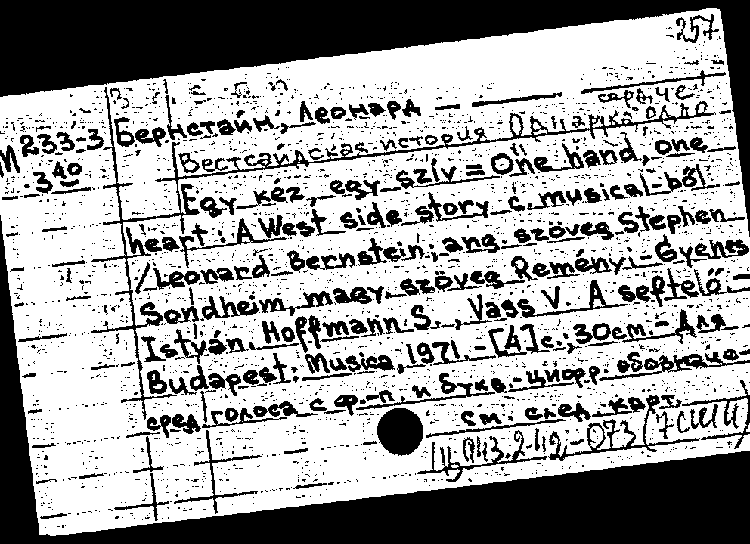 257
M 233-3
340
Бернстайн, Леонард — —
Вестсайдская история Одна рука, одно
сердце
Egy kéz, egy szív = One hand, one
heart: A West side story c. musical-ből
/Leonard Bernstein; ang. szöveg Stephen
Sondheim, magy. szöveg Reményi-Gyenes
István. Hoffmann S., Vass V. A septelő. -
Budapest: Musica, 1971. - [4] с.; 30см. - Для
сред. голоса с ф.-п. и букв.-цифр. обозначе-
см. след. карт.